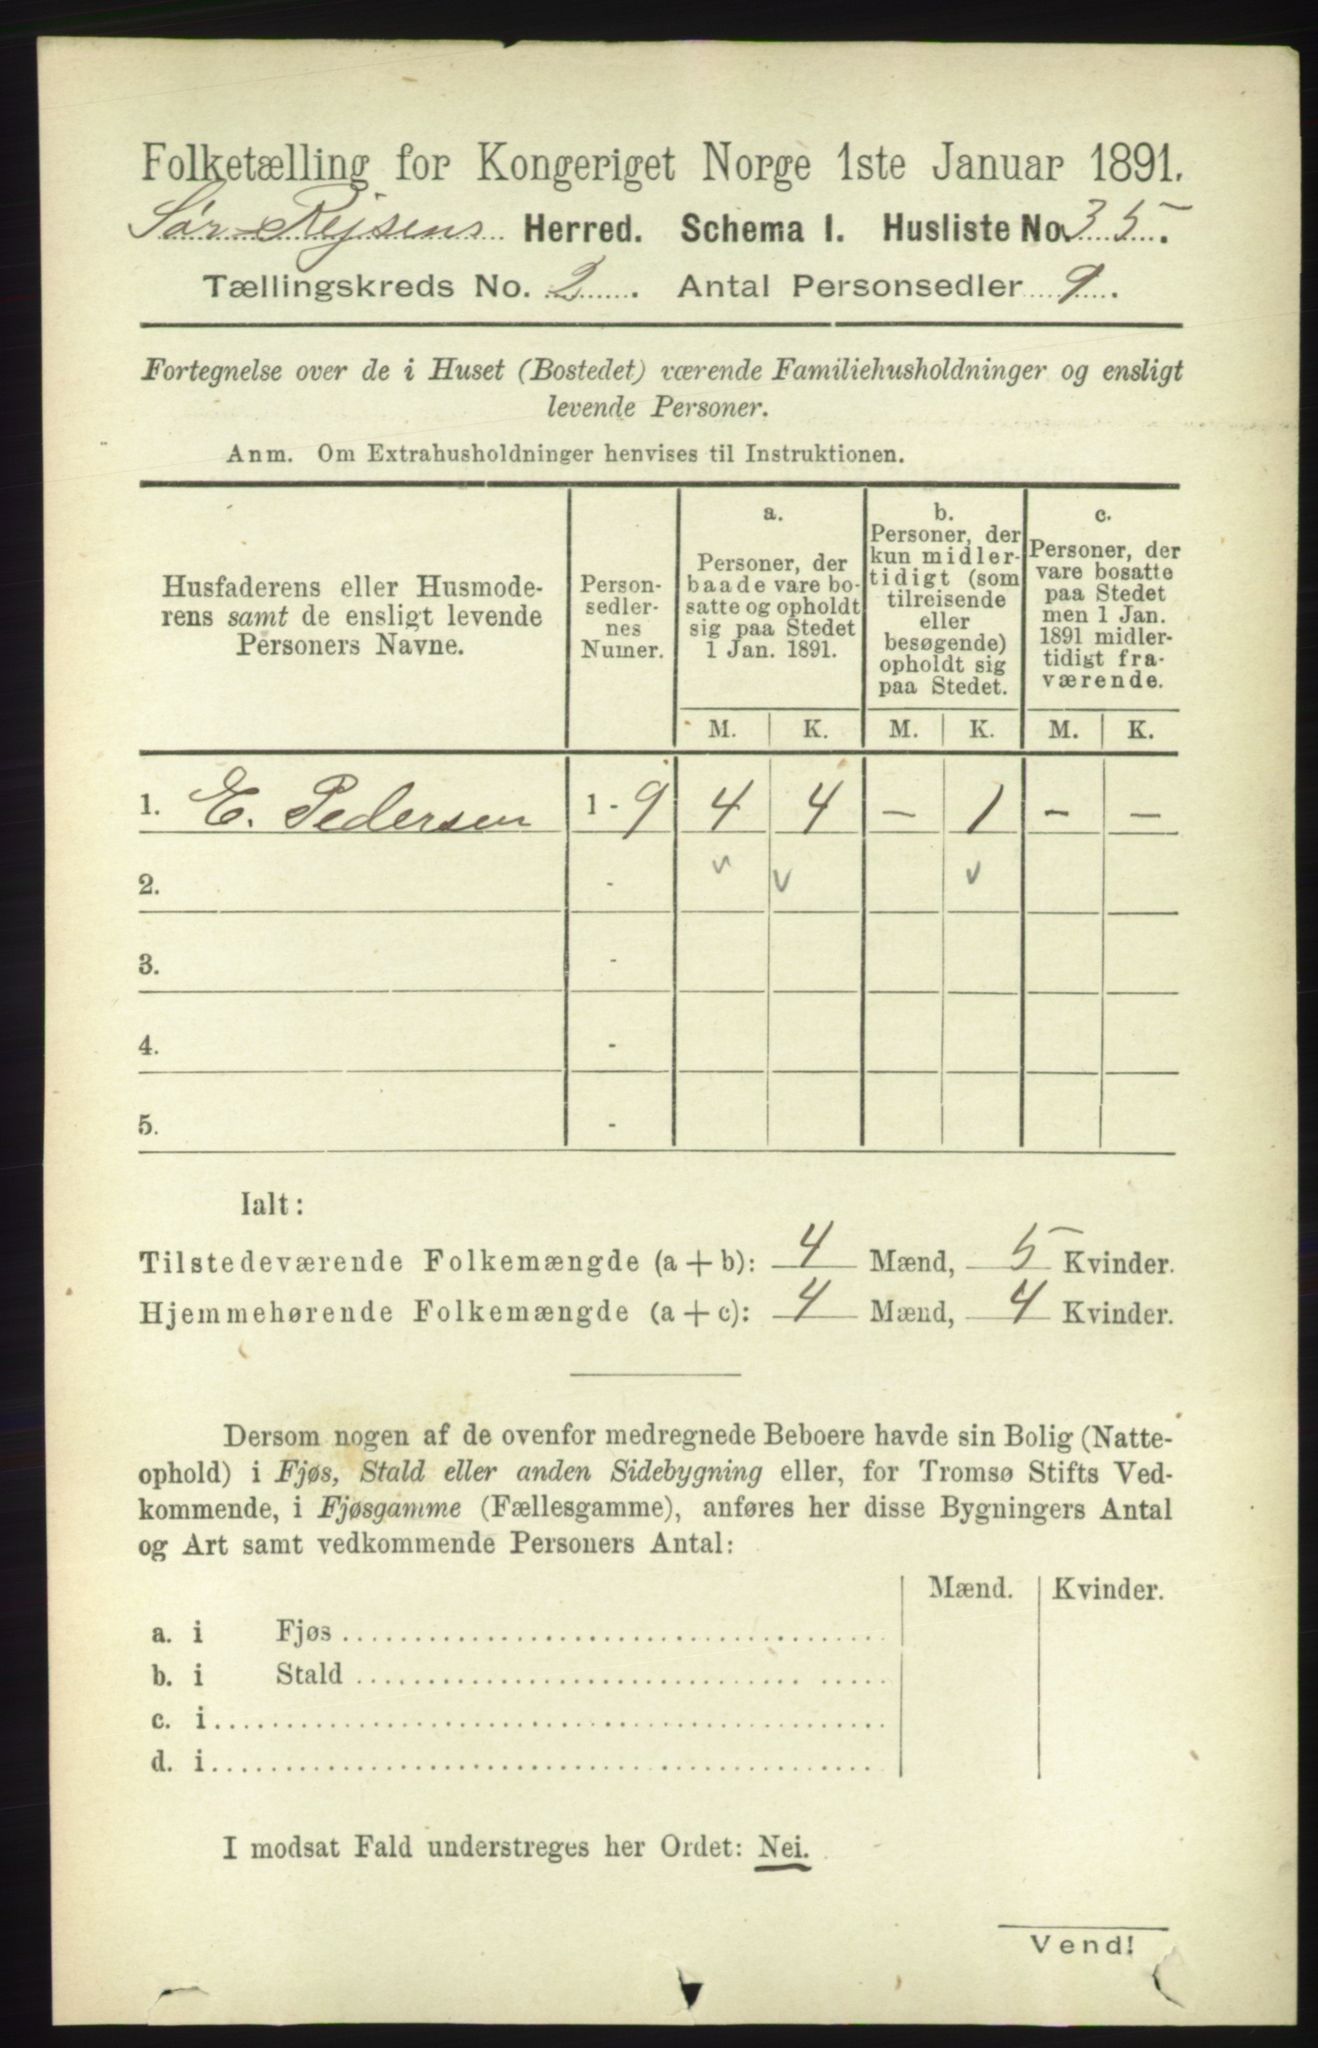 Folketælling for Kongeriget Norge 1ste Januar 1891.
Sør-Rejsens Herred. Schema I. Husliste No. 35.
Tællingskreds No. 2. Antal Personsedler 9.
Fortegnelse over de i Huset (Bostedet) værende Familiehusholdninger og ensligt
levende Personer.
Anm. Om Extrahusholdninger henvises til Instruktionen.
Husfaderens eller Husmode-
rens samt de ensligt levende
Personers Navne.
Person-
sedler-
nes
Numer.
a.
Personer, der
baade vare bo-
satte og opholdt
sig paa Stedet
1 Jan. 1891.
b.
Personer, der
kun midler-
tidigt (som
tilreisende
eller
besøgende)
opholdt sig
paa Stedet.
c.
Personer, der
vare bosatte
paa Stedet
men 1 Jan.
1891 midler-
tidigt fra-
værende.
M. K. M. K. M. K.
1. E. Pedersen 1 - 9 4 4 - 1 - -
2. - v v v
3. -
4. -
5. -
Ialt:
Tilstedeværende Folkemængde (a + b): 4 Mænd, 5 Kvinder.
Hjemmehørende Folkemængde (a + c): 4 Mænd, 4 Kvinder.
Dersom nogen af de ovenfor medregnede Beboere havde sin Bolig (Natte-
ophold) i Fjøs, Stald eller anden Sidebygning eller, for Tromsø Stifts Ved-
kommende, i Fjøsgamme (Fællesgamme), anføres her disse Bygningers Antal
og Art samt vedkommende Personers Antal:
Mænd. Kvinder.
a. i Fjøs
b. i Stald
c. i
d. i
I modsat Fald understreges her Ordet: Nei.
Vend!